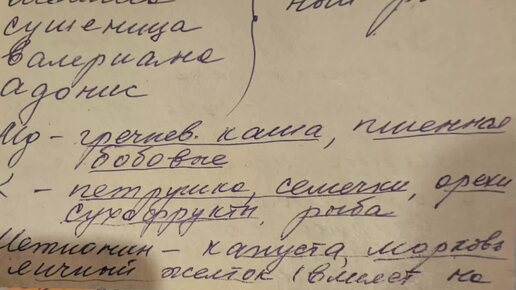 сушеница
валериана
адонис
Mg - гречнев. каша, пшенная
бобовые
К - петрушка, семечки, орехи
сухофрукты, рыба
Метионин - капуста, морковь
яичный желток (влияет на